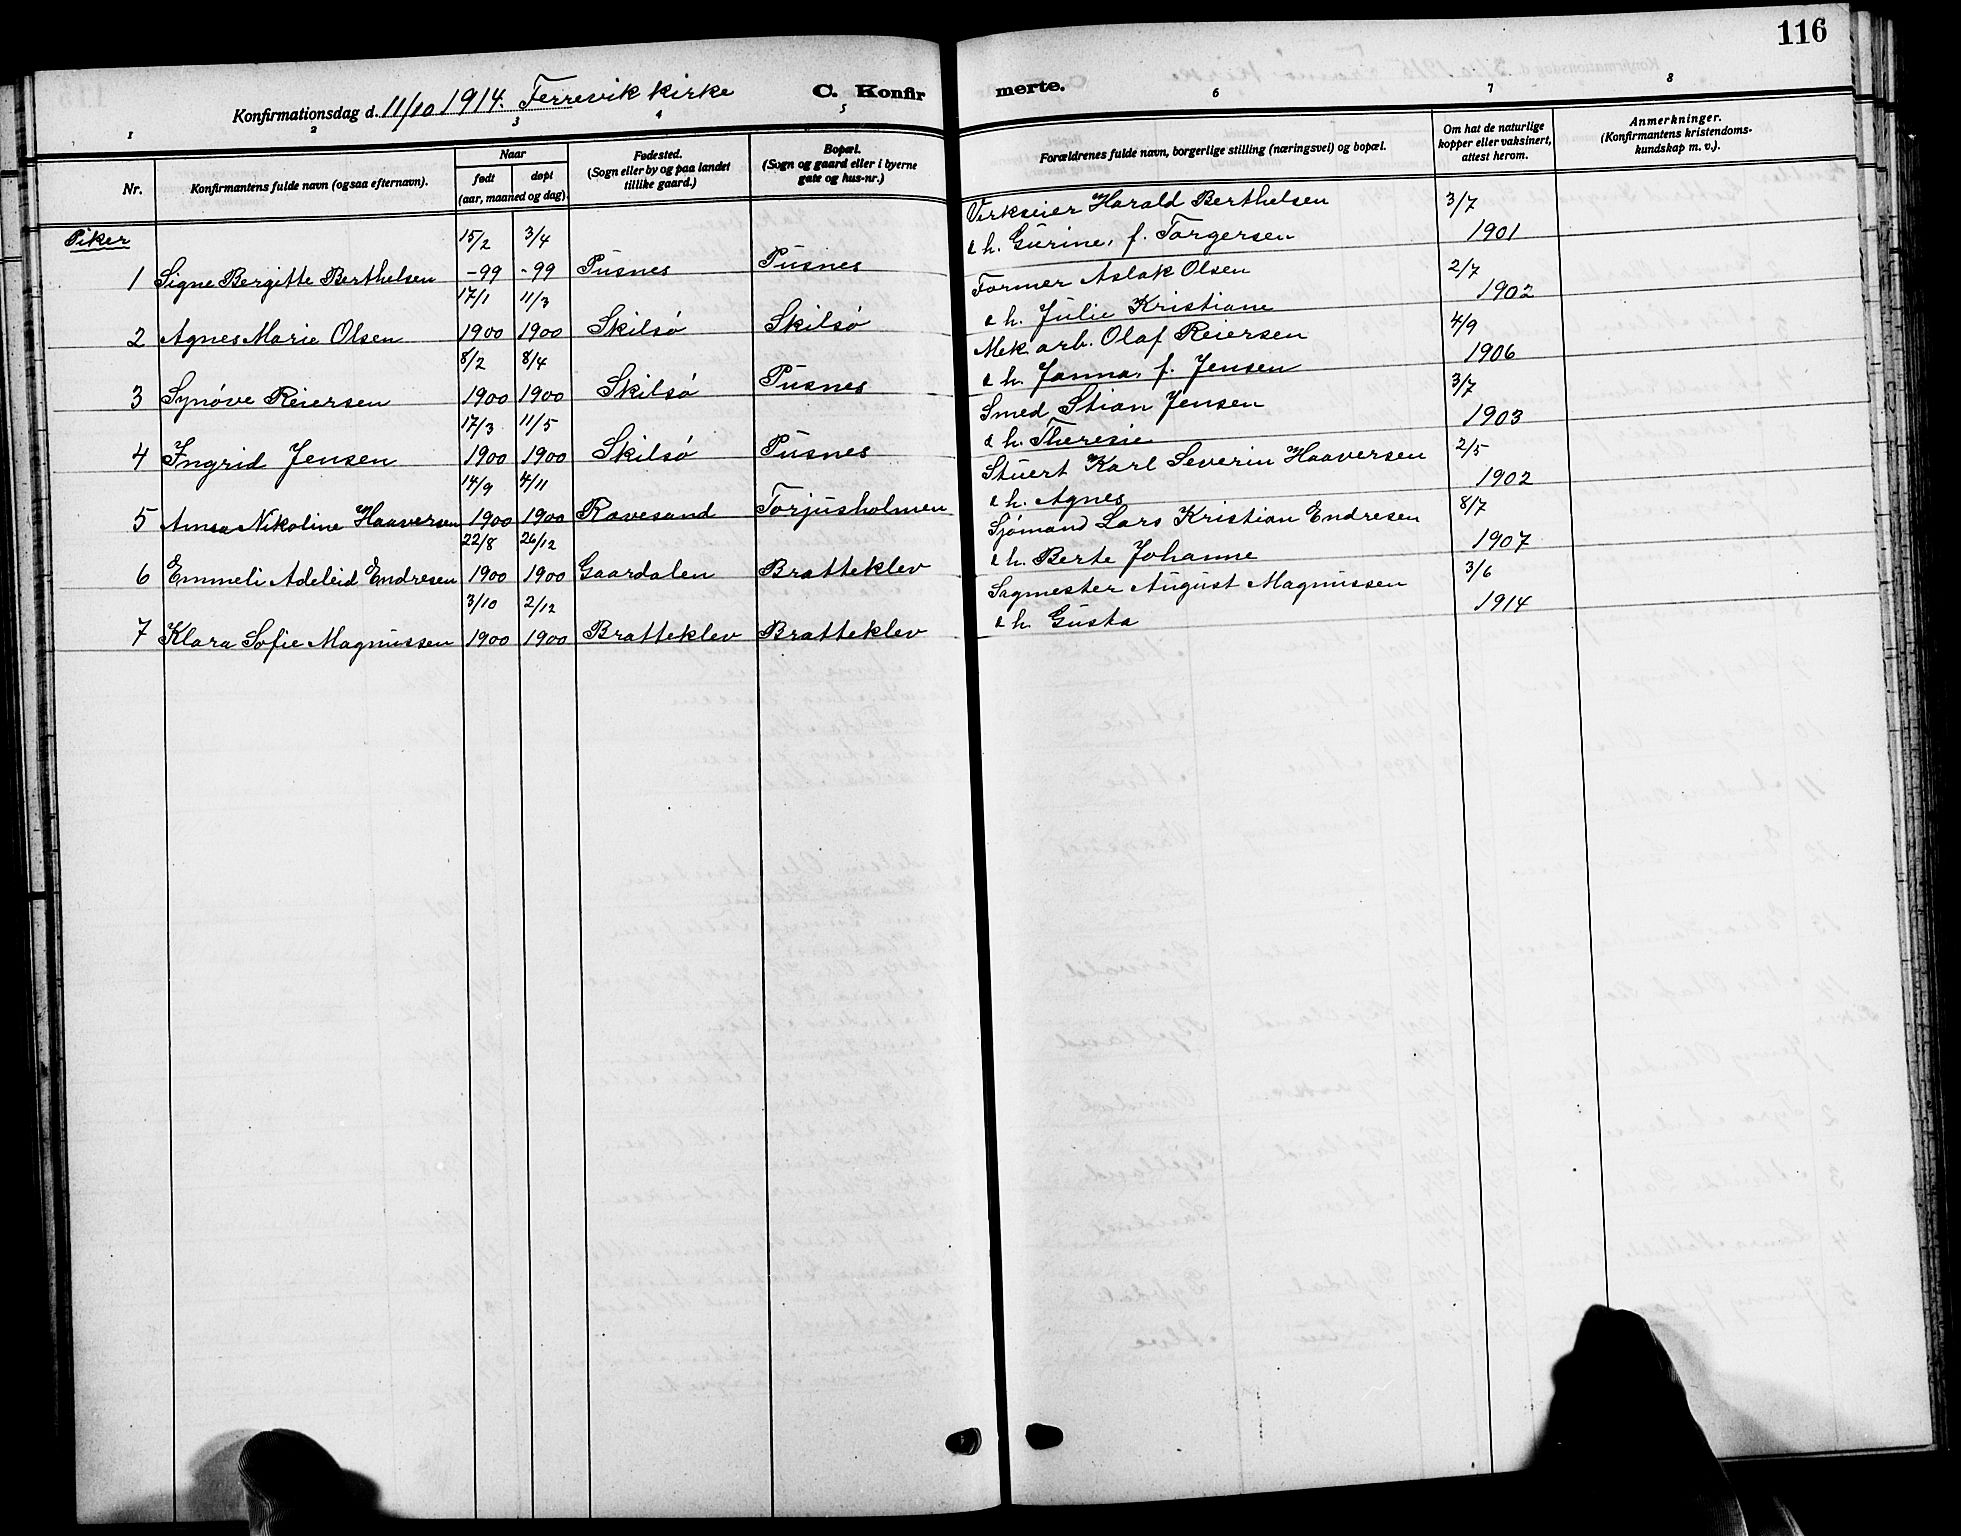 116
Konfirmationsdag d. 11/10 1914. Færevik kirke C. Konfir merte.
1 2 3 4 5 6 7 8
Nr. Konfirmantens fulde navn (ogsaa efternavn). Naar født døpt (aar, maaned og dag). Fødested. (Sogn eller by og paa landet tillike gaard.) Bopæl. (Sogn og gaard eller i byerne gate og hus-nr.) Forældrenes fulde navn, borgerlige stilling (næringsvei) og bopæl. Om hat de naturlige kopper eller vaksinert, attest herom. Anmerkninger. (Konfirmantens kristendoms- kundskap m. v.).
Piker 15/2 3/4 Verkseier Harald Berthelsen 3/7
1 Signe Bergitte Berthelsen -99 -99 Pusnes Pusnes & h. Gurine, f. Torgersen 1901
17/1 11/3 Former Aslak Olsen 2/7
2 Agnes Marie Olsen 1900 1900 Skilsø Skilsø & h. Julie Kristiane 1902
8/2 8/4 Mek arb. Olaf Reiersen 4/9
3 Synøve Reiersen 1900 1900 Skilsø Pusnes & h. Janna, f. Jensen 1906
17/3 11/5 Smed Stian Jensen 3/7
4 Ingrid Jensen 1900 1900 Skilsø Pusnes & h. Theresie 1903
14/9 4/11 Stuert Karl Severin Haaversen 2/5
5 Anna Nikoline Haaversen 1900 1900 Ravesand Torjusholmen & h. Agnes 1902
22/8 26/12 Sjømand Lars Kristian Endresen 8/7
6 Emmeli Adeleid Endresen 1900 1900 Gaardalen Bratteklev & h. Berte Johanne 1907
3/10 2/12 Sagmester August Magnussen 3/6
7 Klara Sofie Magnussen 1900 1900 Bratteklev Bratteklev & h. Gusta 1914